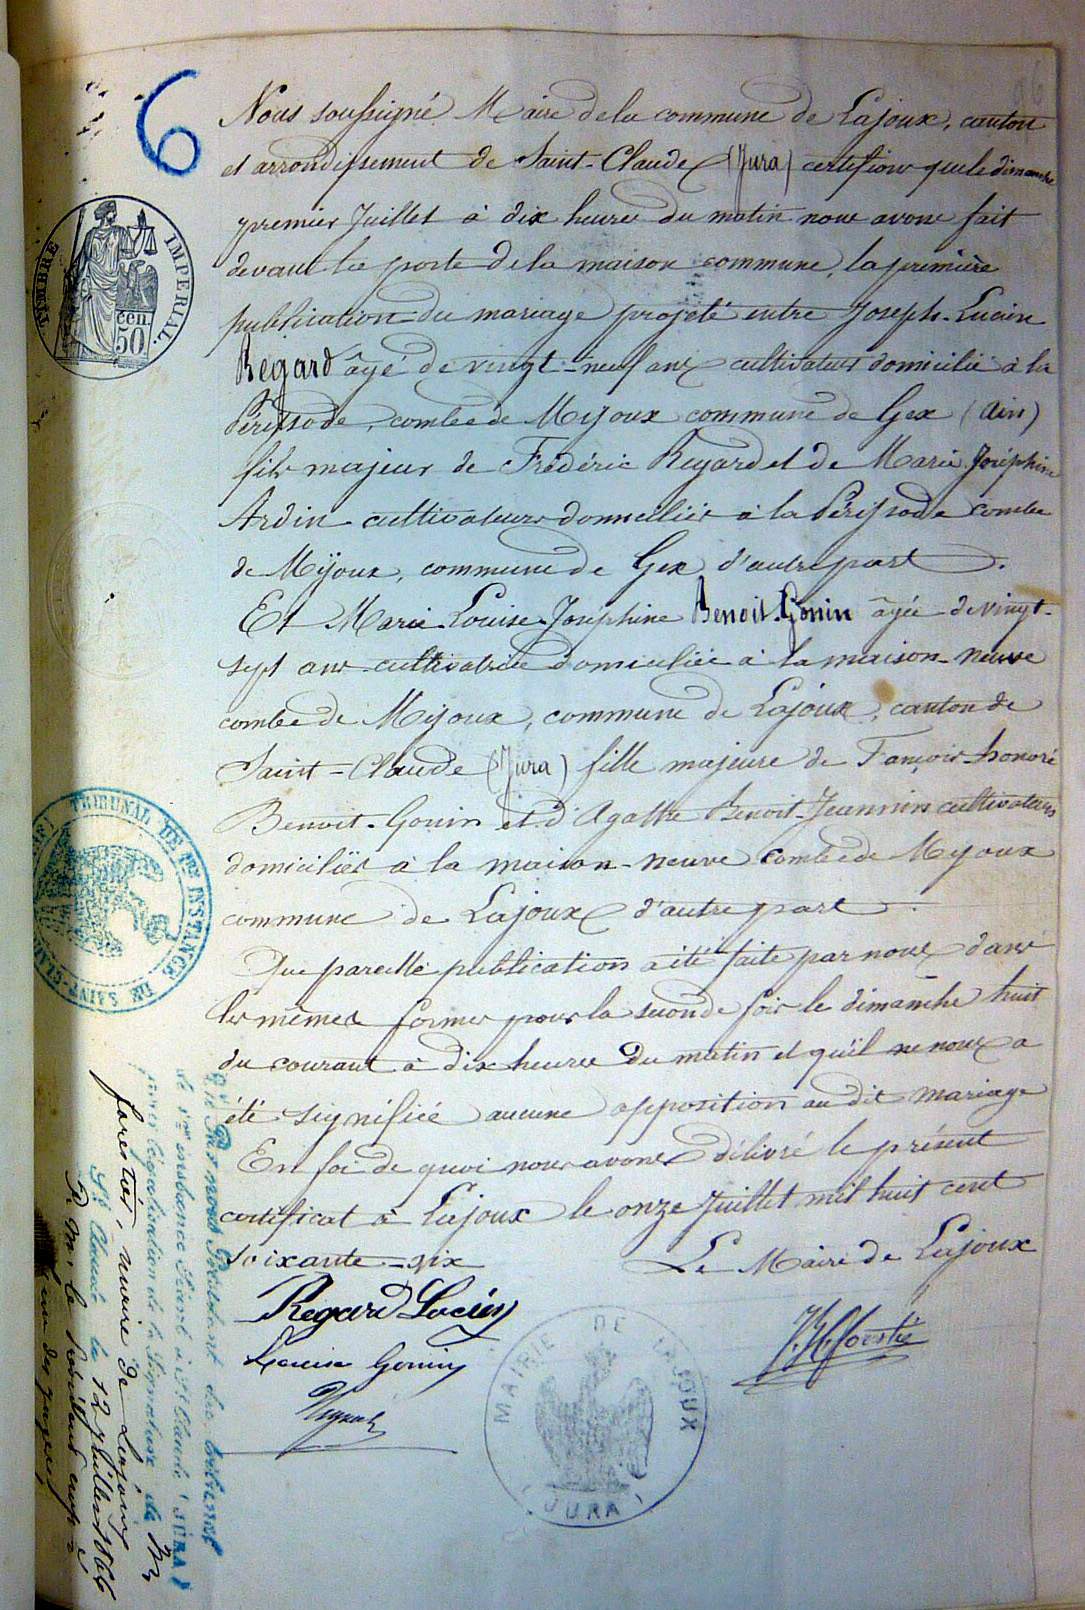 6
Nous soussigné Maire de la commune de Lajoux, canton
et arrondissement de Saint-Claude (Jura) certifions que le dimanche
premier Juillet à dix heures du matin nous avons fait
devant la porte de la maison commune, la première
publication du mariage projeté entre Joseph-Lucien
Regard âgé de vingt-neuf ans cultivateur domicilié à la
Périssode, combe de Mijoux commune de Gex (Ain)
fils majeur de Frédéric Regard et de Marie Joséphine
Ardin cultivateurs domiciliés à la Périssode combe
de Mijoux, commune de Gex d'autre part.
Et Marie-Louise-Joséphine Benoit-Gonin âgée de vingt-
sept ans cultivatrice domiciliée à la maison-neuve
combe de Mijoux, commune de Lajoux, canton de
Saint-Claude (Jura) fille majeure de Fançois-honoré
Benoit-Gonin et d'Agathe Benoit-Jeannin cultivateurs
domiciliés à la maison-neuve combe de Mijoux
commune de Lajoux d'autre part.
Que pareille publication a été faite par nous dans
les mêmes formes pour la seconde fois le dimanche huit
du courant à dix heures du matin et qu'il ne nous a
été signifiée aucune opposition au dit mariage
En foi de quoi nous avons délivré le présent
certificat à Lajoux le onze Juillet mil huit cent
soixante-six
Le Maire de Lajoux
Regard Lucien
Louise Gonin
MAIRIE DE LAJOUX
(JURA)
TIMBRE IMPERIAL.
50 cen
TRIBUNAL DE 1RE INSTANCE DE SAINT-CLAUDE
Vu Par nous Président du tribunal
de 1re instance séant à St Claude (JURA)
pour légalisation de la Signature de M
forestier, maire de Lajoux
St Claude le 12 Juillet 1866